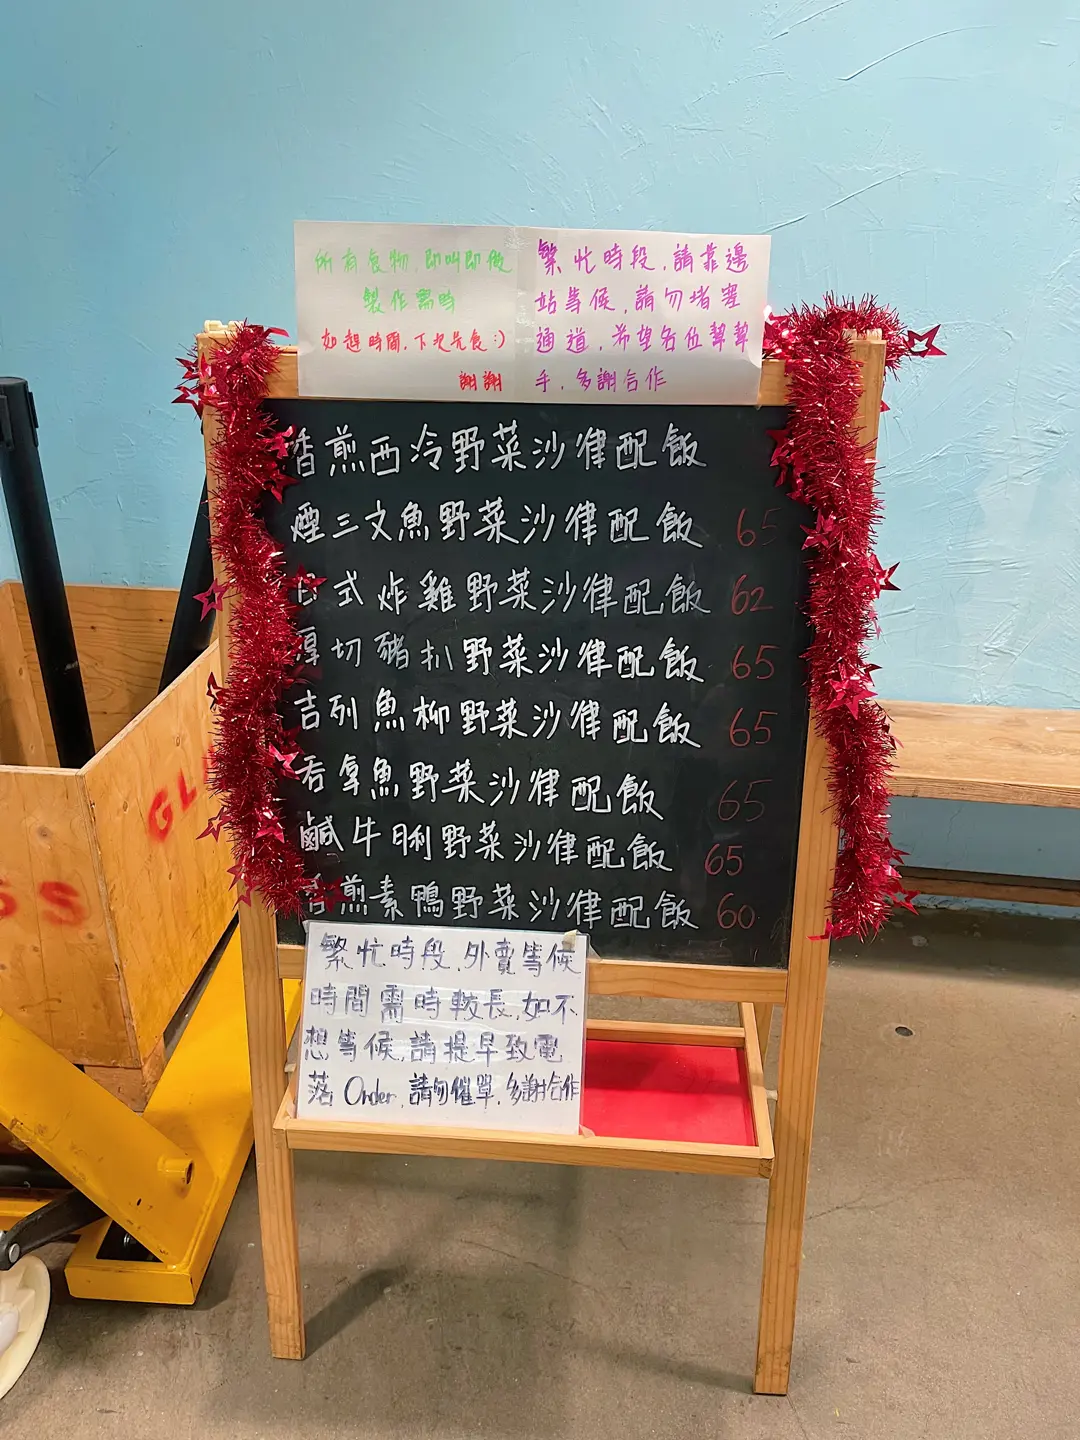 所有食物，即叫即做
製作需時
如趕時間，下次先食:)
謝謝
繁忙時段，請靠邊
站等候，請勿堵塞
通道，希望各位幫幫
手，多謝合作
香煎西冷野菜沙律配飯
煙三文魚野菜沙律配飯 65
日式炸雞野菜沙律配飯 62
厚切豬扒野菜沙律配飯 65
吉列魚柳野菜沙律配飯 65
吞拿魚野菜沙律配飯 65
鹹牛脷野菜沙律配飯 65
香煎素鴨野菜沙律配飯 60
繁忙時段，外賣等候
時間需時較長，如不
想等候，請提早致電
落Order，請勿催單，多謝合作
SS